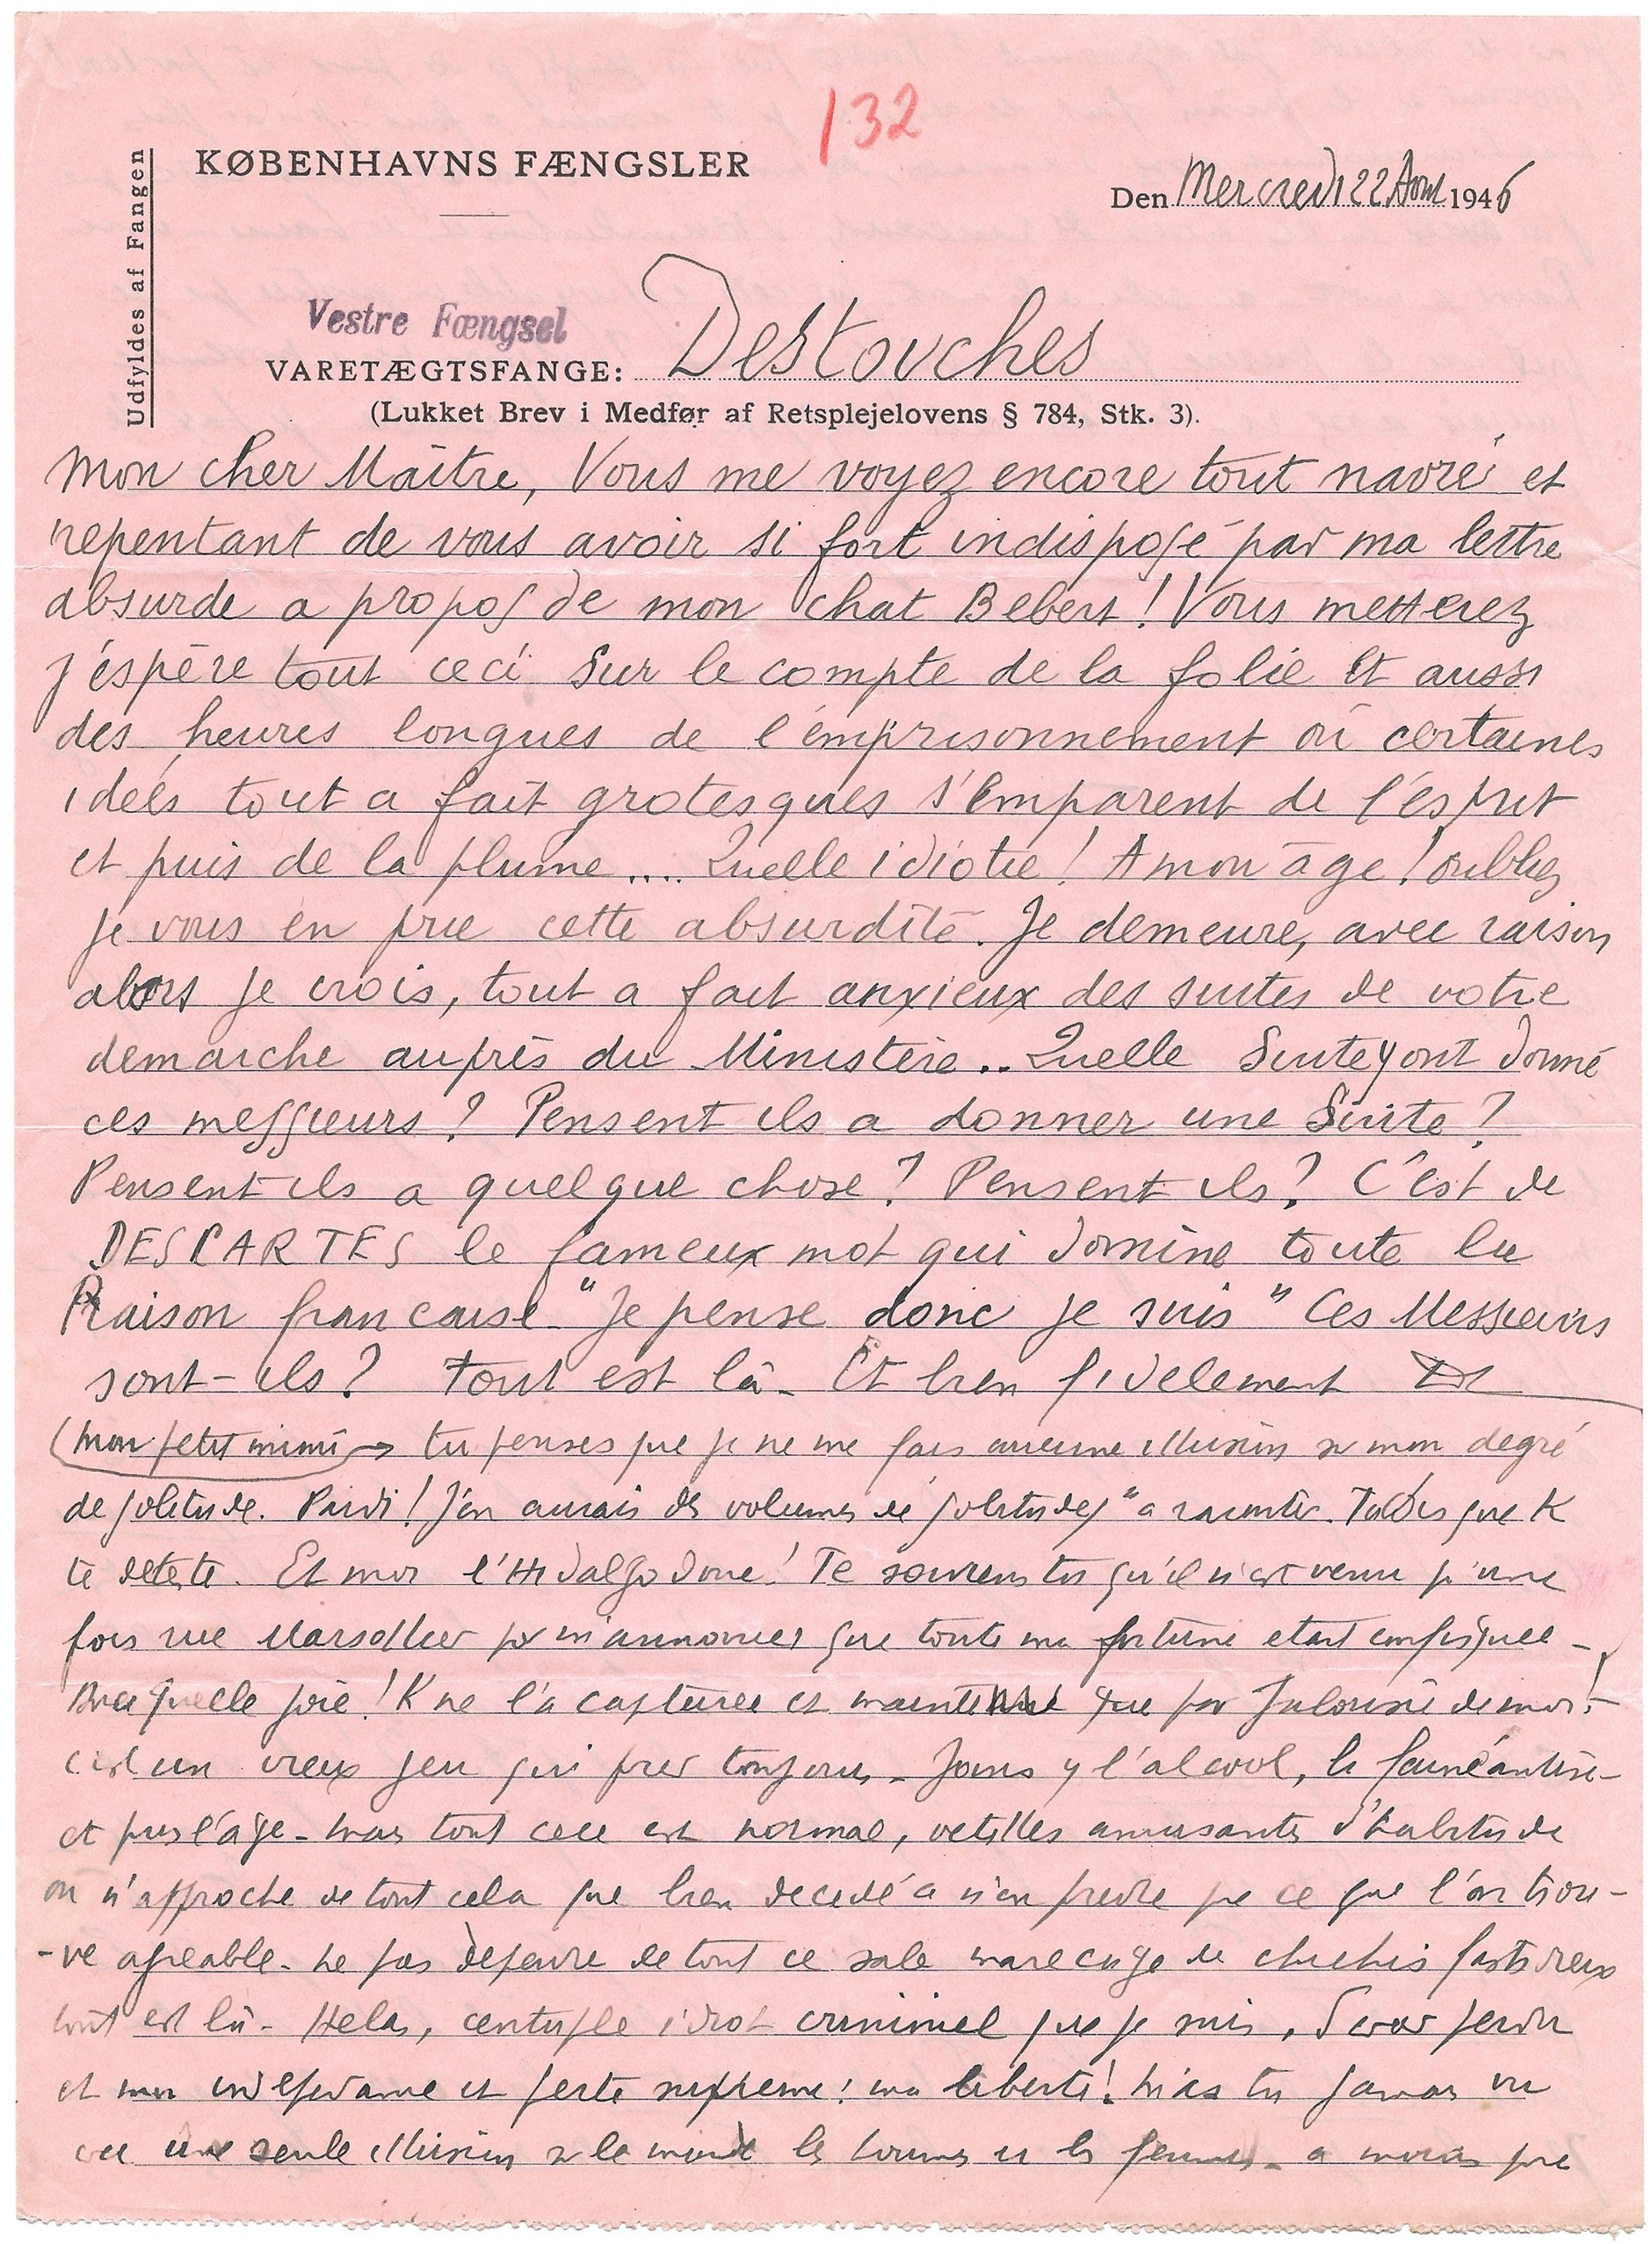 132
KØBENHAVNS FÆNGSLER
Udfyldes af Fangen
Den Mercredi 22 Aout 1946
Vestre Fængsel
VARETÆGTSFANGE: Destouches
(Lukket Brev i Medfør af Retsplejelovens § 784, Stk. 3).
Mon cher Maître, Vous me voyez encore tout navré et
repentant de vous avoir si fort indisposé par ma lettre
absurde a propos de mon chat Bebert ! Vous metterez
j'éspère tout ceci sur le compte de la folie et aussi
des heures longues de l'emprisonnement où certaines
idées tout a fait grotesques s'emparent de l'esprit
et puis de la plume .... Quelle idiotie ! A mon âge ! oubliez
je vous en prie cette absurdité. Je demeure, avec raison
alors je crois, tout a fait anxieux des suites de votre
demarche auprès du Ministère .. Quelle suite y ont donné
ces messieurs ? Pensent ils a donner une suite ?
Pensent ils a quelque chose ? Pensent ils ? C'est de
DESCARTES le fameux mot qui domine toute la
Raison francaise "Je pense donc je suis" Ces Messieurs
sont-ils ? Tout est là - Et bien fidelement
(mon petit mimi → tu penses que je ne me fais aucune illusion sur mon degré
de solitude. Pardi ! J'en aurais des volumes de "solitudes" a raconter. Tu dis que K
te deteste. Et moi l'Hidalgo donc ! Te souviens tu qu'il n'est venu qu'une
fois rue Marsollier pr m'annoncer que toute ma fortune etait confisquée -
Avec quelle joie ! K ne l'a capturée et que par Jalousie de moi ! -
c'est un vieux jeu qui prend toujours - Joins y l'alcool, la fainéantise -
et puis l'âge - mais tout ceci est normal, vetilles amusantes d'habitude
on n'approche de tout cela que bien decidé a n'en prendre que ce que l'on trou-
-ve agreable - ne pas dépendre de tout ce sale marecage de chichis fastidieux
tout est là - Helas, centuple idiot criminel que je suis, d'avoir perdu
et mon independance et perte supreme : ma liberté ! M'as tu jamais vu
une seule illusion sr le monde les hommes et les femmes - a moins que